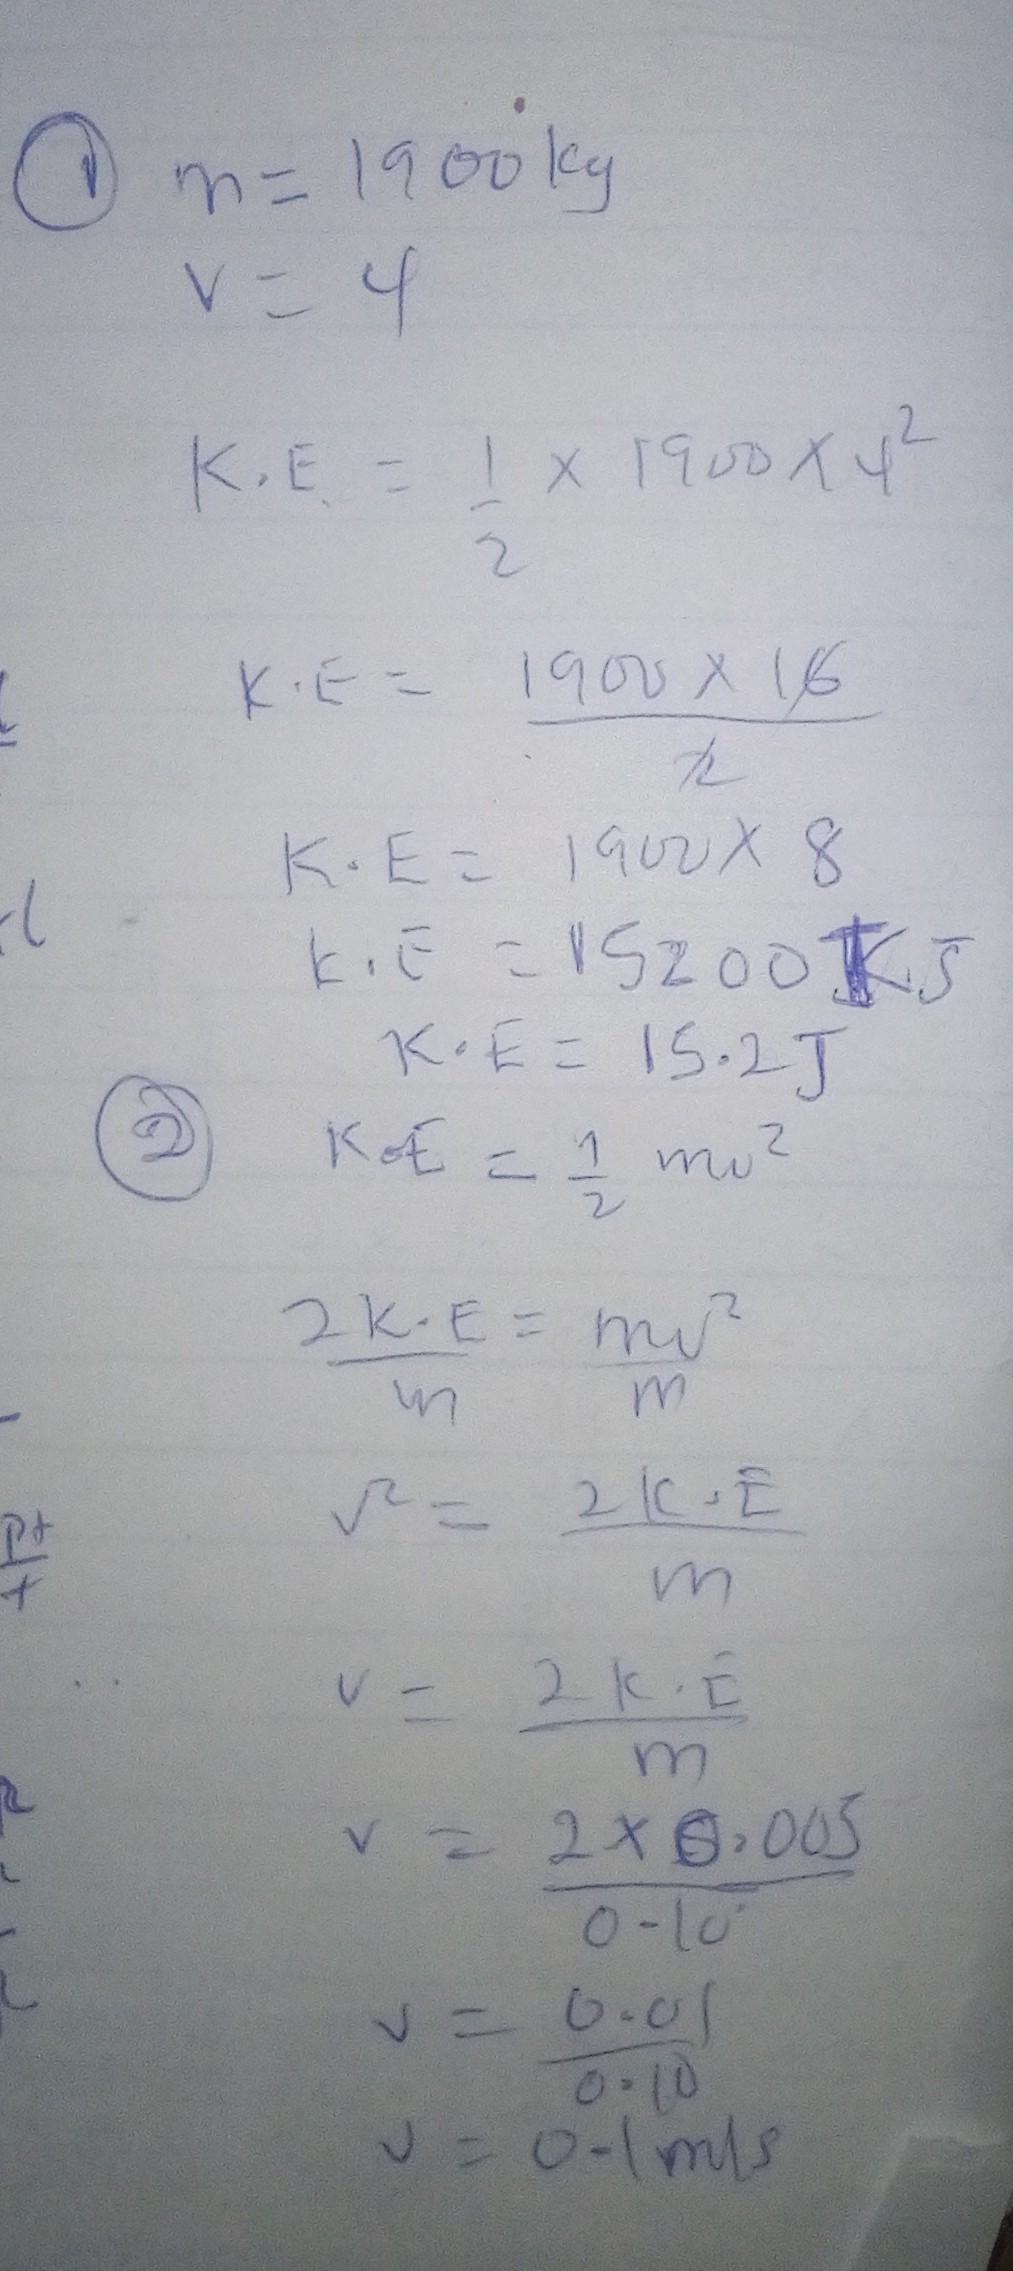 ① m = 1900kg
v = 4
K.E = 1/2 x 1900 x 4²
K.E = 1900 x 16 / 2
K.E = 1900 x 8
K.E = 15200 K.J
K.E = 15.2J
② K.E = 1/2 mv²
2K.E/m = mv²/m
v² = 2K.E/m
v = 2K.E/m
v = 2 x 0.005 / 0.10
v = 0.01/0.10
v = 0.1m/s